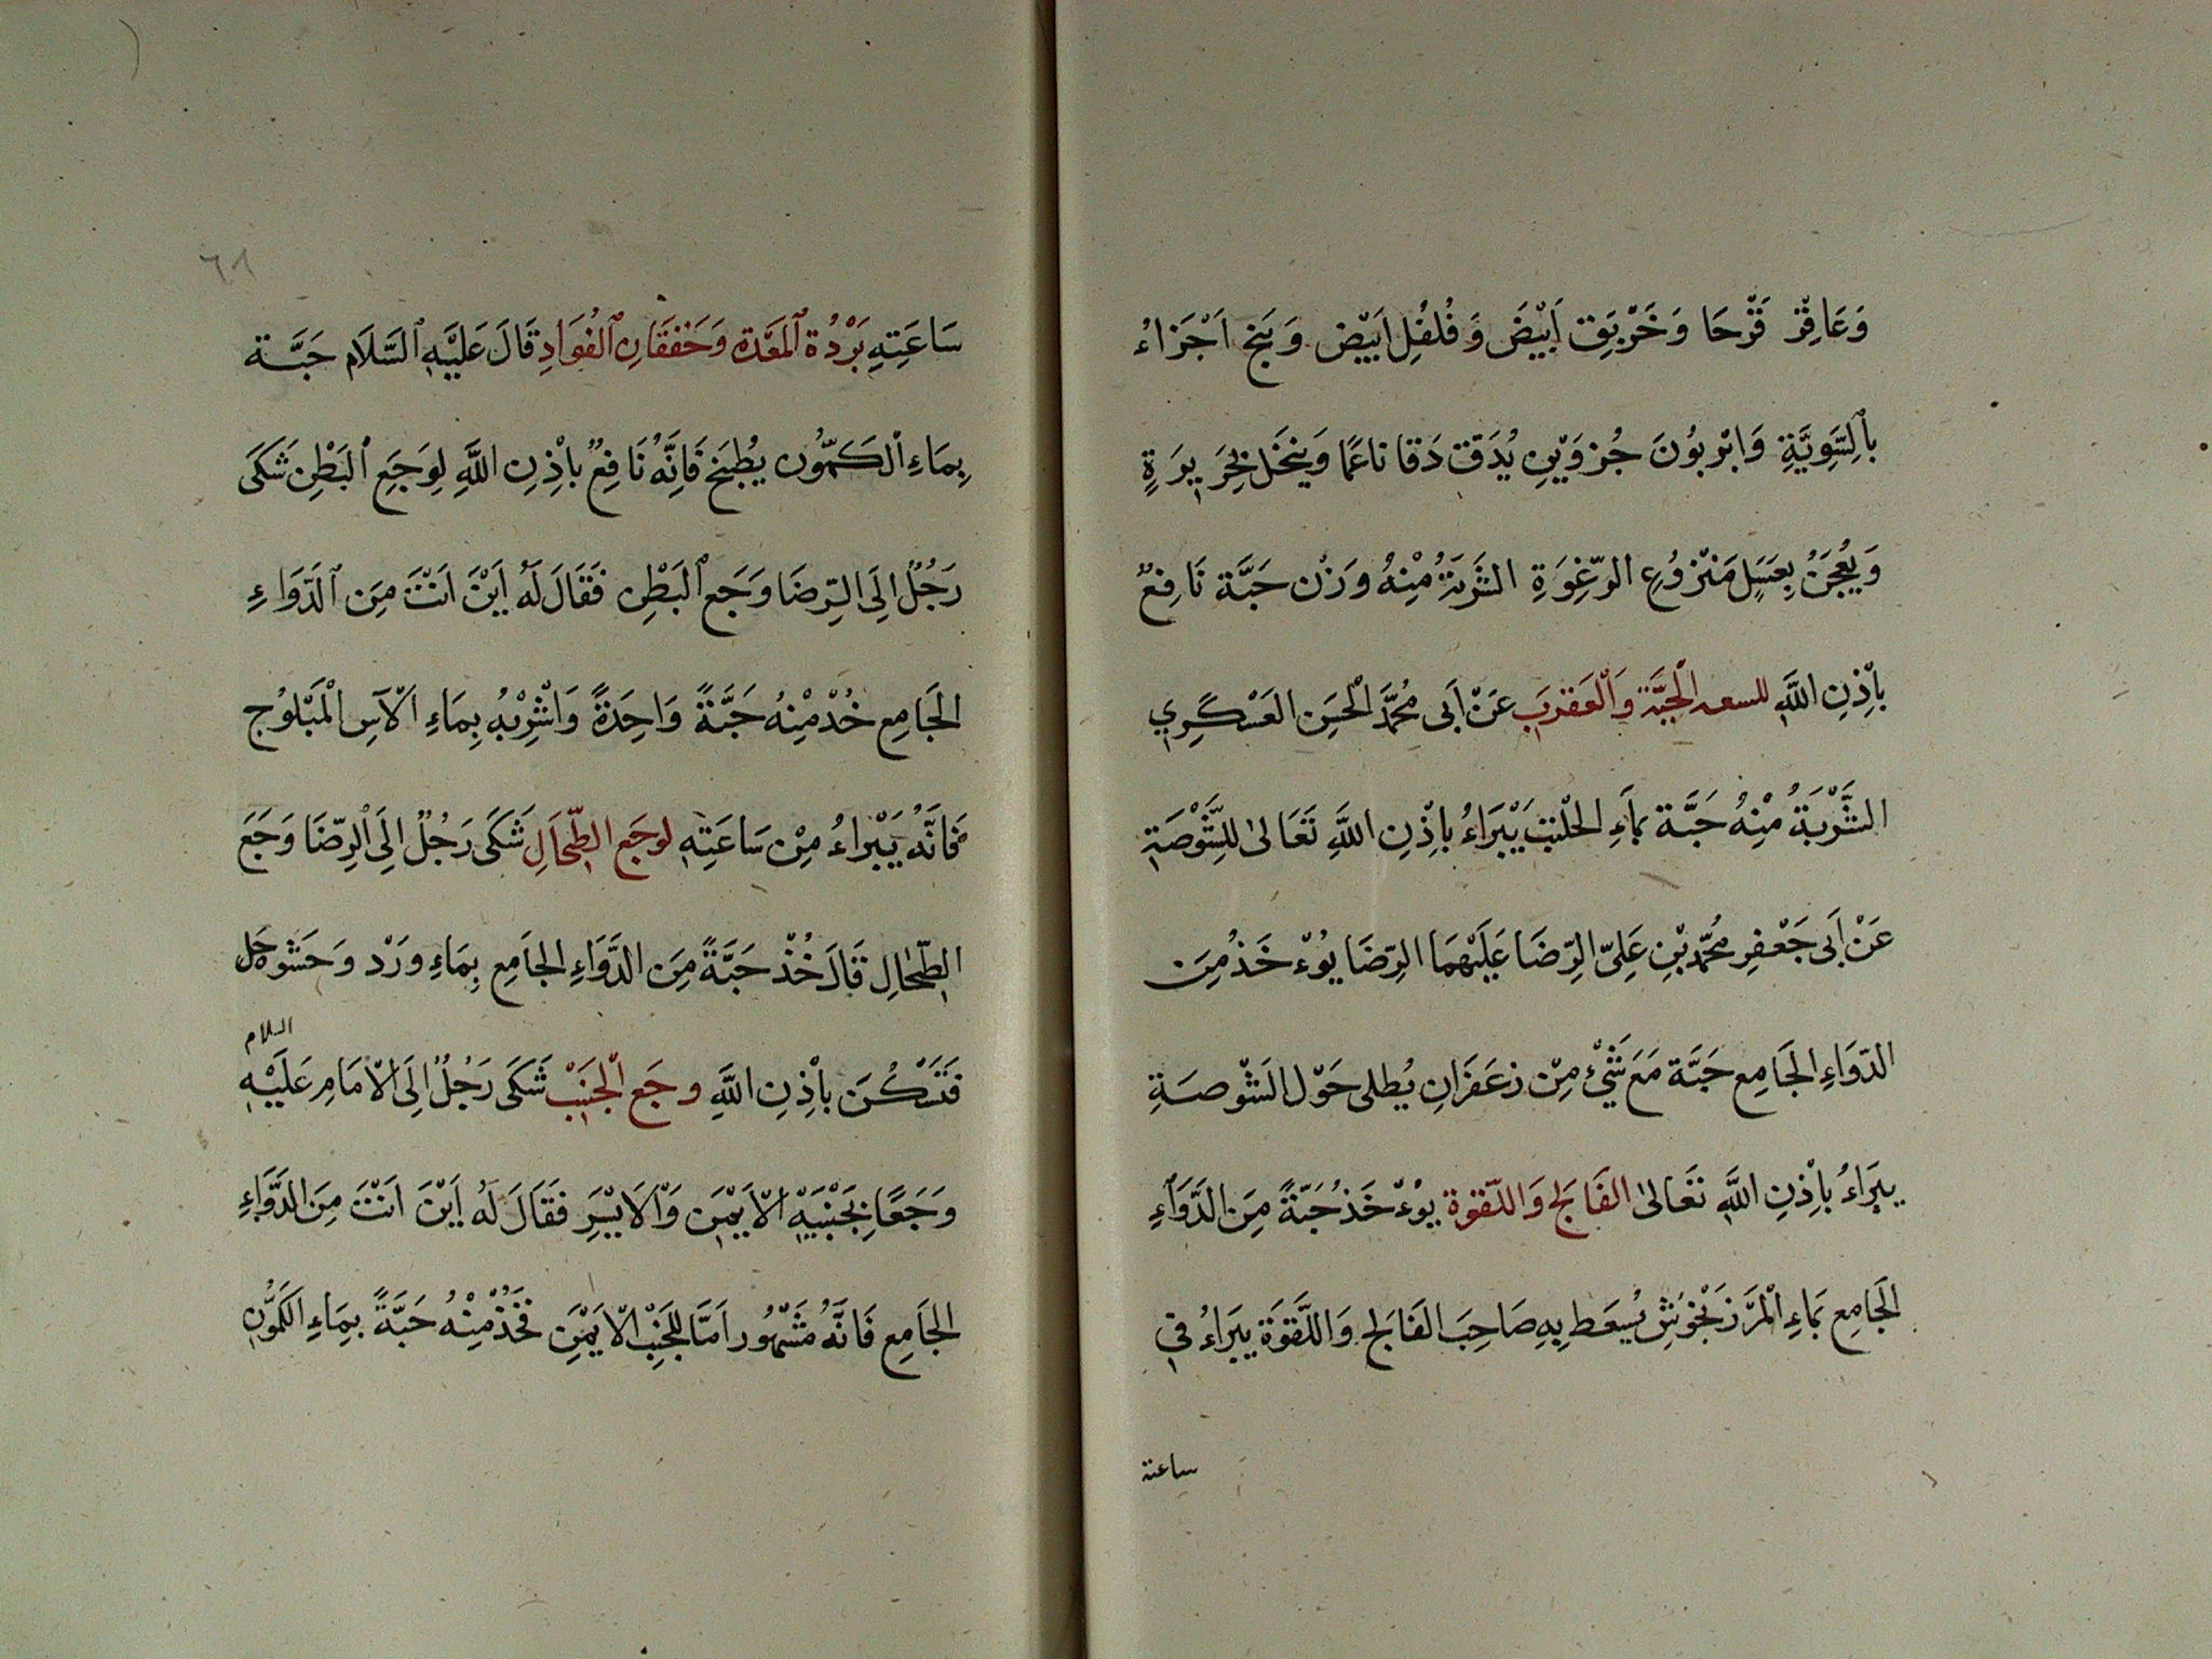 وَعَاقِرْ قَرْحَا وَخَرْبَقٍ اَبْيَضَ وَفُلفُلِ اَبْيَضْ وَبَنجْ اَجْزَاءُ
بالِسَّوِيَّةِ وَابْرَبُونَ جُزْوَيْنِ يُدَقّ دَقا ناعًما وَينخَل بِحَرِيرَةٍ
وَيُعْجَنُ بِعَسَلٍ مَنْزُوْعِ الرّغِوَةِ الشَرَبَةُ مُنْهُ وَزْن حَبَّة نَافِعٌ
بِاْذِنِ اللَّهِ للسعه الْحَيَّة وَالْعَقرَب عَنْ اَبى مُحَمَّدْ الْحَسَنِ العَسْكَرِي
الشَّرْبَةُ مُنْهُ حَبَّة بماَءِ الحلْتيت يَبْرَاءُ باِذْنِ اللَّهِ تَعَالىٰ للِشَّوْصَةِ
عَنْ اَبى جَعْفِرِ مُحَمَّد بْنِ عَلِىّ الرِّضَا عَلَيْهِمَا الرِّضَا يُوْءخَذُ مِنَ
الدّوَاءِ الجَامِع حَبَّة مَعَ شَيْءٍ مِنْ زعَفَرَانِ يُطلى حَوْل الشَوْصَةِ
يبرَاءُ باِذْنِ اللَّهِ تَعَالىٰ الفَالج وَاللّقوَة يُوْءخَذُ حَبّةً مِنَ الدَّوَاءِ
الجَامِع بمَاءِ الْمَرْزَنْجُوشِ يُسعَط بِهِ صَاحِبَ الفَالج وَاللَّقوَة يبَراءُ فِي
ساعته
٦١
سَاعَتِهِ بَرْدُة اَلمَعَدة وَخَفقَانِ اَلفُوَادِ قَالَ عَليَّهِ اَلسَّلاَم حَبَّة
بِمَاءِ اْلكَمّوُن يُطْبَخ فَاِنَّهُ نَافِعٌ باِذْنِ اللَّهِ لِوَجَعِ اْلبَطْنِ شَكَى
رَجُلٌ اِلَى الِرّضَا وَجَع اَلبَطْنِ فَقَالَ لَهُ اَيْنَ اَنْتَ مِنَ اَلدَّوَاءِ
الجَامِع خُذْ مْنِهُ حَبَّةً وَاحِدَةً وَاشْرِبْهُ بِمَاءِ اْلآسِ الْمَبْلوُج
فَاِنَّهُ يَبْراءُ مِنْ سَاعَتِهِ لوجَع الطِّحَالِ شَكَى رَجُلٌ اِلَى اَلرِّضَا وَجَعَ
الطّحٰالِ قَالَ خُذْ حَبَّةً مِنَ الدَّوَاءِ الجاَمِع بِمَاءِ وَرْد وَحَشَو خَل
السلام
فَتَسْكُنَ باِذْنِ اللَّهِ وجَع الْجَنَبْ شَكَى رَجُلٌ اِلَى اْلاِمَامِ عَلَيْهِ
وَجَعًا بِجَنْبَيْهِ اْلاَيْمَنِ وَاْلاَيْسَرِ فَقَالَ لَهُ اَيْنَ اَنْتَ مِنَ الدَّوَاءِ
الجَامِع فَاِنَّهُ مَشْهُور اَمَّا للجَنِبْ الاَيْمَنِ فَخُذْ مْنِهُ حَبَّةً بِمَاءِ الكَمُّونِ